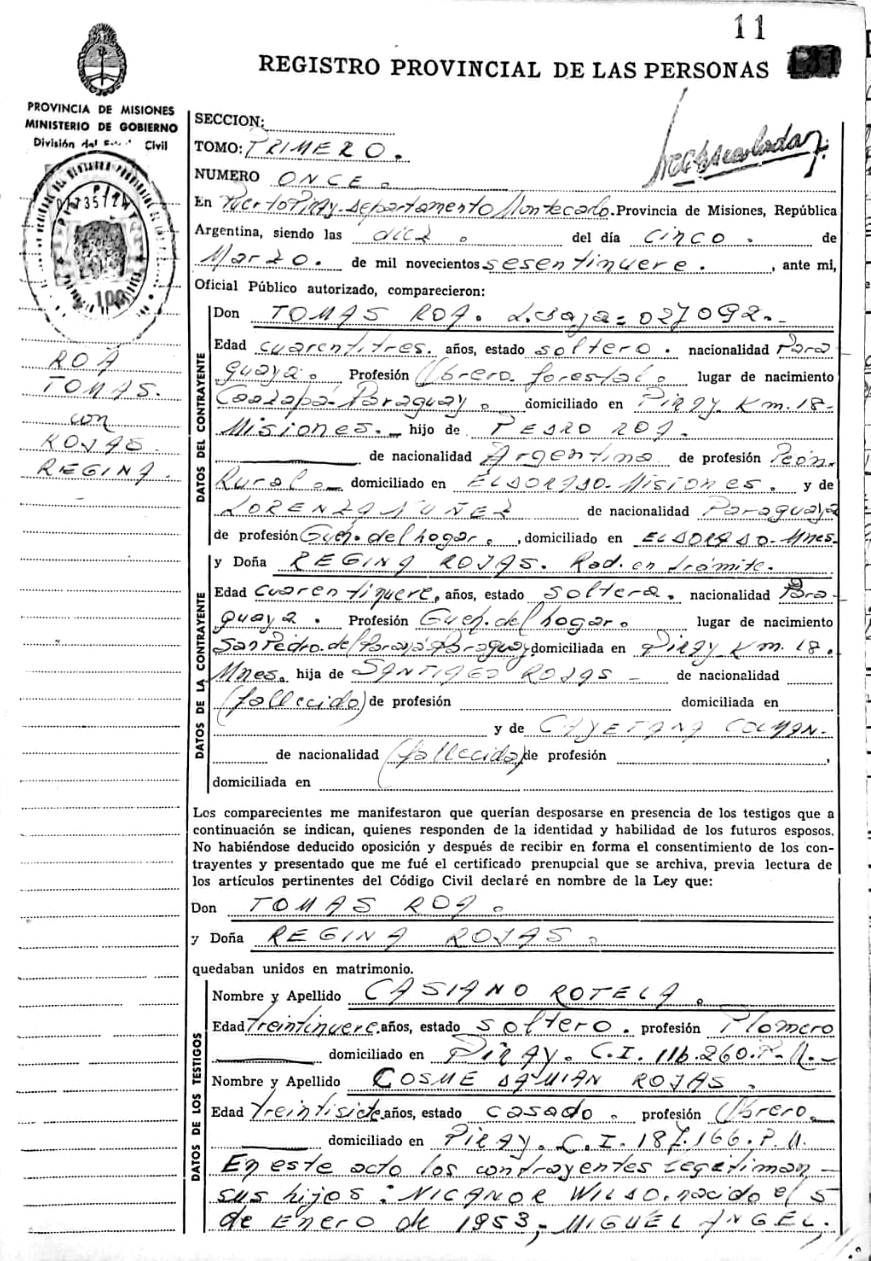 11
REGISTRO PROVINCIAL DE LAS PERSONAS
PROVINCIA DE MISIONES
MINISTERIO DE GOBIERNO
División del Civil
SECCION:
TOMO: PRIMERO.
NUMERO ONCE.
En Puerto Piray. Departamento Montecarlo. Provincia de Misiones, República
Argentina, siendo las diez. del día Cinco. de
Marzo. de mil novecientos sesentinueve., ante mi,
Oficial Público autorizado, comparecieron:
ROA
TOMAS.
con
ROJAS
REGINA.
DATOS DEL CONTRAYENTE
Don TOMAS ROA. 027092.-
Edad cuarentitres. años, estado soltero. nacionalidad Para
guaya. Profesión Obrero forestal. lugar de nacimiento
Caazapá-Paraguay. domiciliado en Piray Km. 18-
Misiones. hijo de PEDRO ROA.
de nacionalidad Argentina de profesión Peón.
Rural. domiciliado en ELDORADO-Misiones. y de
LORENZA NUÑEZ de nacionalidad Paraguaya
de profesión Queh. del hogar., domiciliado en ELDORADO-Mnes.
DATOS DE LA CONTRAYENTE
y Doña REGINA ROJAS. Rad. en trámite.
Edad Cuarentinueve, años, estado Soltera. nacionalidad Para
guaya. Profesión Queh. del hogar. lugar de nacimiento
San Pedro del Paraná Paraguay domiciliada en Piray Km. 18.
Mnes. hija de SANTIAGO ROJAS - de nacionalidad
(fallecido) de profesión domiciliada en
y de CAYETANA COLMAN.
de nacionalidad (fallecida) de profesión ,
domiciliada en
Los comparecientes me manifestaron que querían desposarse en presencia de los testigos que a
continuación se indican, quienes responden de la identidad y habilidad de los futuros esposos.
No habiéndose deducido oposición y después de recibir en forma el consentimiento de los con-
trayentes y presentado que me fué el certificado prenupcial que se archiva, previa lectura de
los artículos pertinentes del Código Civil declaré en nombre de la Ley que:
Don TOMAS ROA.
y Doña REGINA ROJAS.
quedaban unidos en matrimonio.
DATOS DE LOS TESTIGOS
Nombre y Apellido CASIANO ROTELA.
Edad treintinueve. años, estado soltero. profesión Plomero
domiciliado en PIRAY. C.I. 116.260.
Nombre y Apellido COSME DAMIAN ROJAS.
Edad treintisiete años, estado casado. profesión Obrero.
domiciliado en PIRAY. C.I. 187.166.
En este acto los contrayentes legitiman -
sus hijos: NICANOR WILSO, nacido el 5
de Enero de 1953, MIGUEL ANGEL,